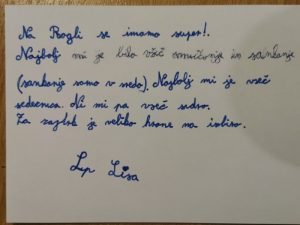 Na Rogli se imamo super!.
Najbolj mi je bilo všeč smučanje in sankanje
(sankanje samo v sredo). Najbolj mi je všeč
sedežnica. Ni mi pa všeč sidro.
Za zajtrk je veliko hrane na izbiro.
Lp Lisa